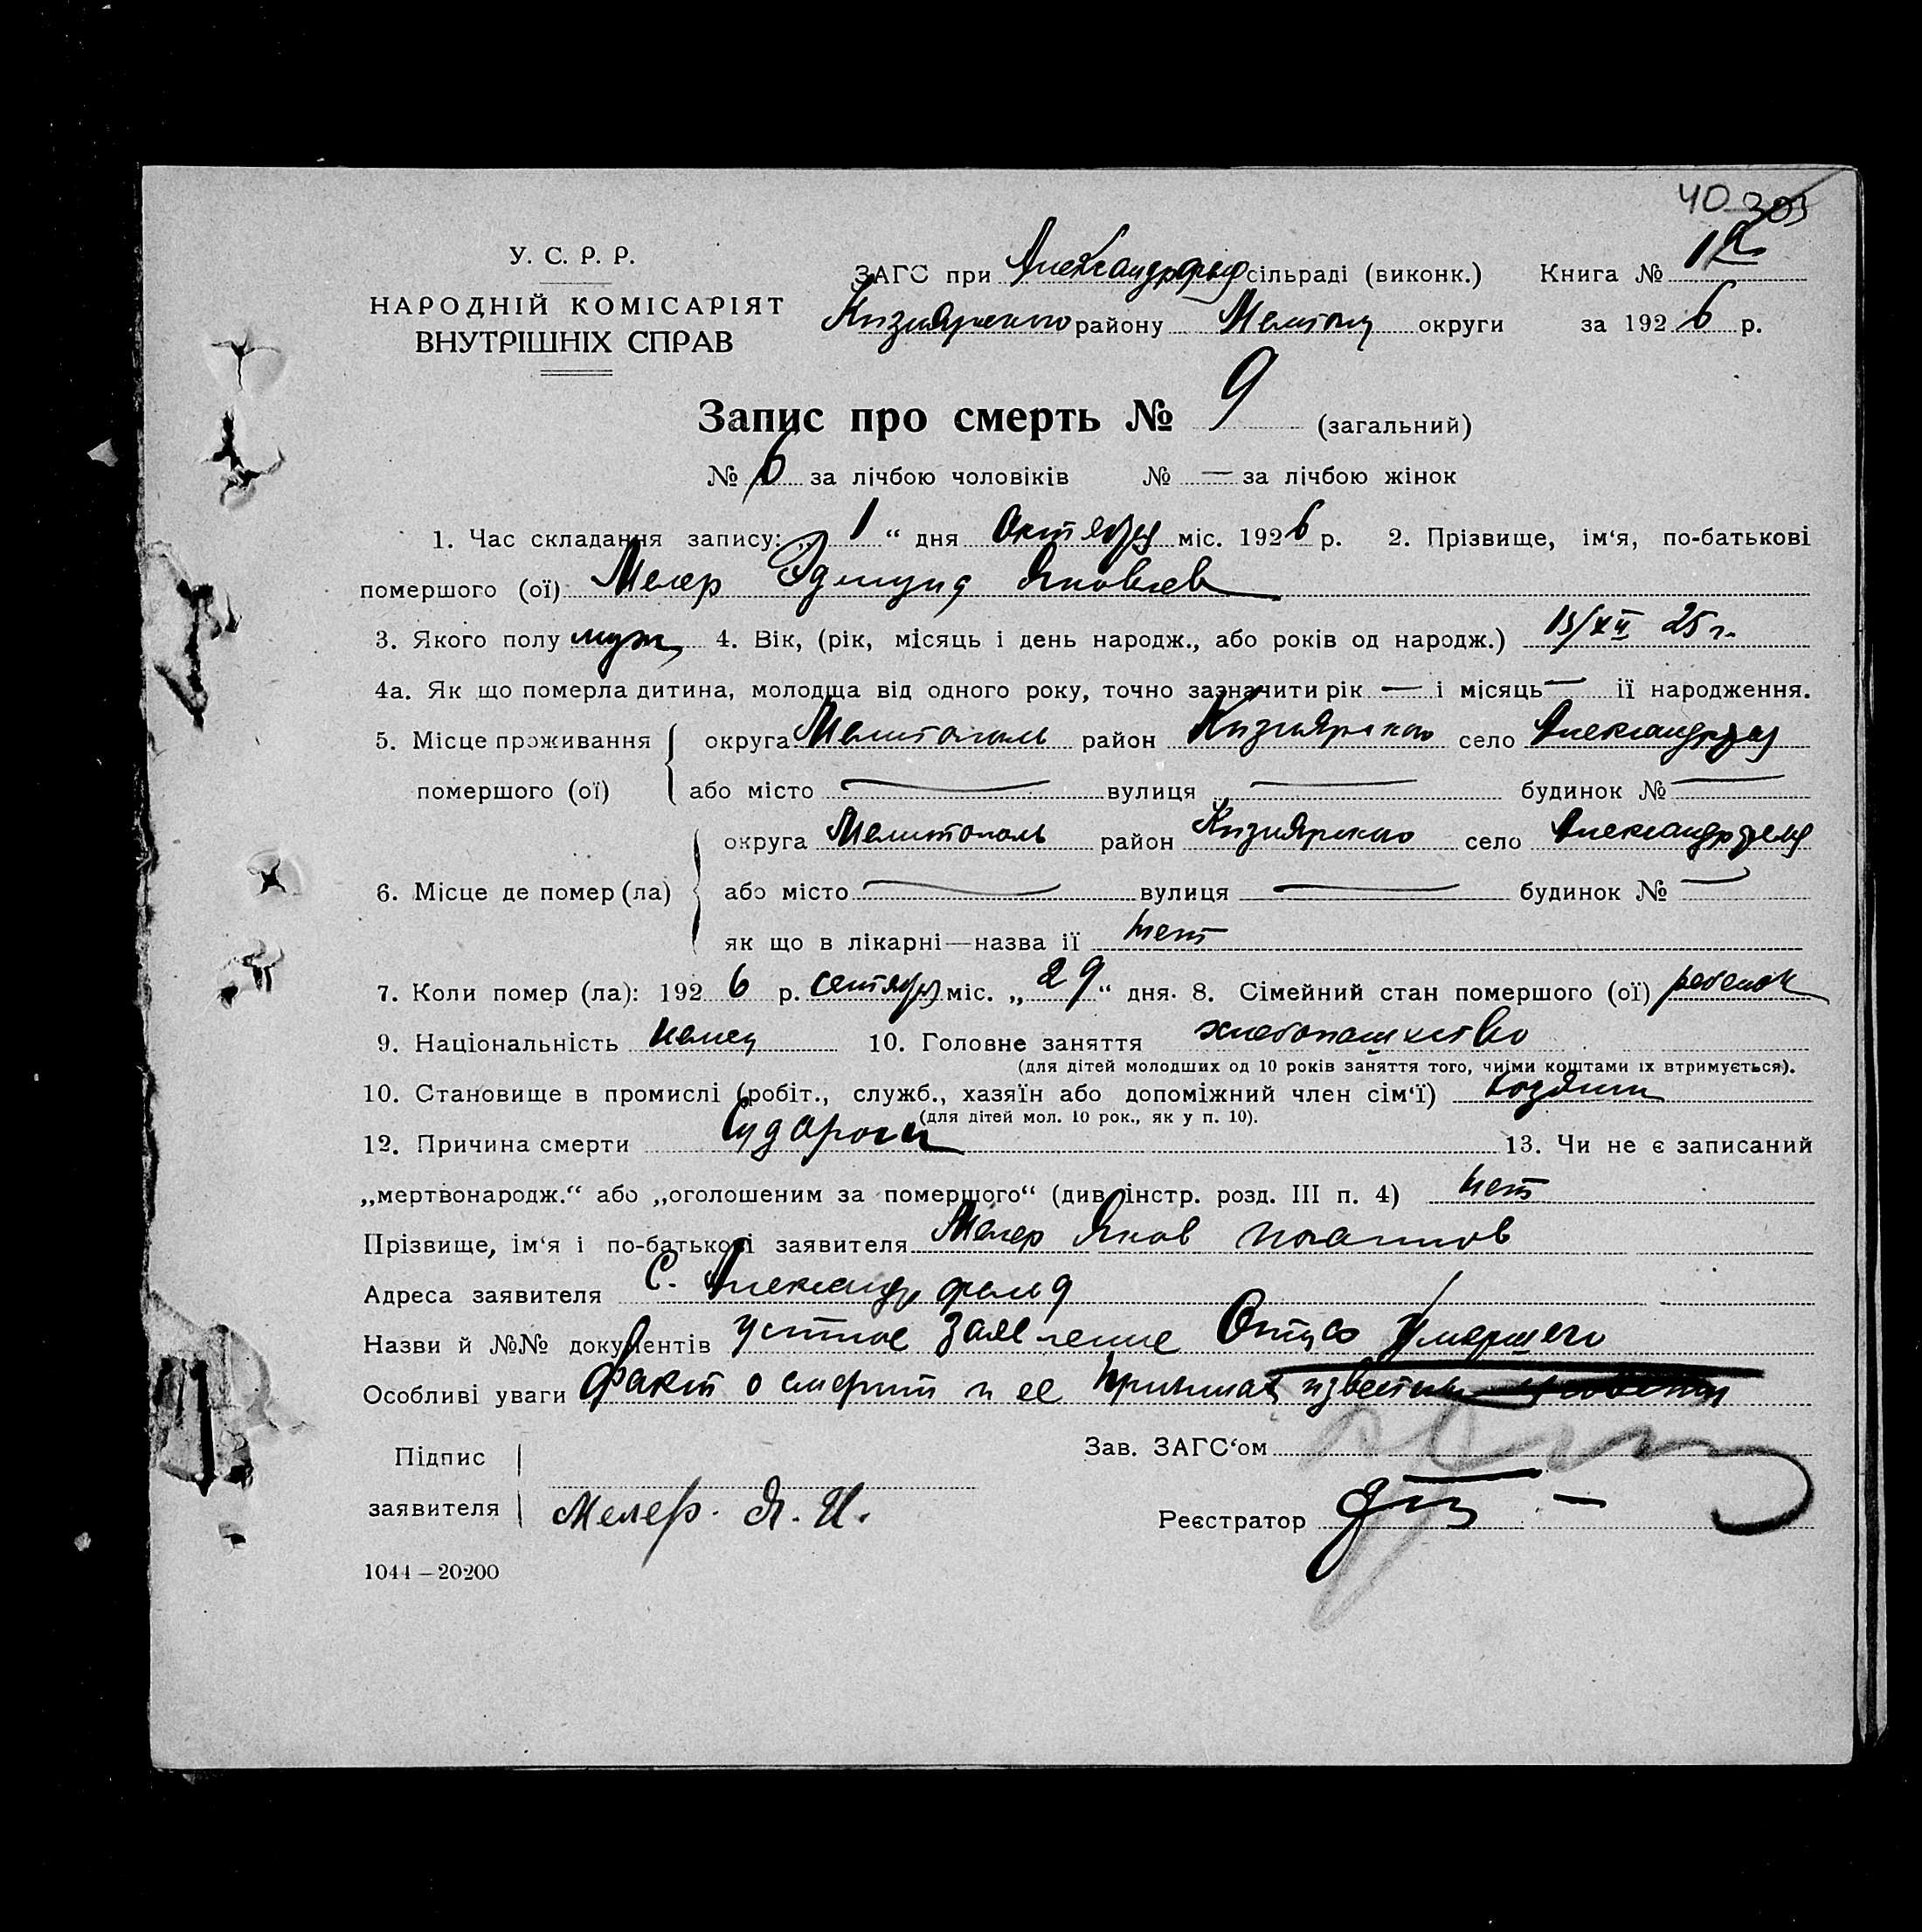 40 303
У. С. Р. Р.
НАРОДНІЙ КОМІСАРІЯТ
ВНУТРІШНІХ СПРАВ
ЗАГС при Александрфельд сільраді (виконк.) Книга № 1а
Кизиярского району Мелитоп округи за 1926 р.
Запис про смерть № 9 (загальний)
№ 6 за лічбою чоловіків № — за лічбою жінок
1. Час складання запису: „ 1 “ дня Октября міс. 1926 р. 2. Прізвище, ім‘я, по-батькові
помершого (ої) Мелер Эдмунд Яковлев
3. Якого полу муж 4. Вік, (рік, місяць і день народж., або років од народж.) 15/XII 25 г.
4а. Як що померла дитина, молодща від одного року, точно зазначити рік — і місяць — її народження.
5. Місце проживання округа Мелитополь район Кизиярского село Александрфельд
помершого (ої) або місто — вулиця — будинок № —
округа Мелитополь район Кизиярского село Александрфельд
6. Місце де помер (ла) або місто — вулиця — будинок № —
як що в лікарні—назва її нет
7. Коли помер (ла): 1926 р. сентября міс. „ 29 “ дня. 8. Сімейний стан помершого (ої) ребенок
9. Національність немец 10. Головне заняття хлебопашество
(для дітей молодших од 10 років заняття того, чиїми коштами їх втримується).
10. Становище в промислі (робіт., служб., хазяїн або допоміжний член сім‘ї) хозяин
(для дітей мол. 10 рок., як у п. 10).
12. Причина смерти Судороги 13. Чи не є записаний
„мертвонародж.“ або „оголошеним за помершого“ (див. інстр. розд. III п. 4) нет
Прізвище, ім‘я і по-батькові заявителя Мелер Яков
Адреса заявителя с. Александрфельд
Назви й №№ документів устное заявление Отца Умершего
Особливі уваги факт о смерти и ее причинах известны
Підпис Зав. ЗАГС‘ом
заявителя Мелер. Я. И. Реєстратор
1044—20200